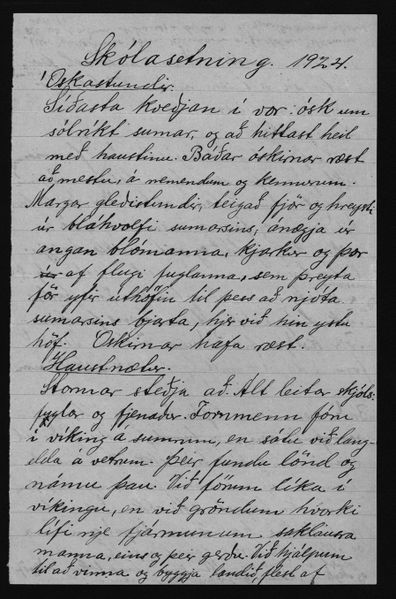 Skólasetning. 1924.
Óskastundir.
Síðasta kveðjan í vor: ósk um
sólríkt sumar, og að hittast heil
með haustinu. Báðar óskirnar ræst
að mestu, á nemendum og kennurum.
Margar gleðistundir, teigað fjör og hreysti
úr bláhvolfi sumarsins, ánægja úr
angan blómanna, kjarkur og þor
af flugi fuglanna, sem þreyta
för yfir úthöfin til þess að njóta
sumarsins bjarta, hjer við hin ystu
höf. Óskirnar hafa ræst.
Haustnætur.
Stormar steðja að. Alt leitar skjóls:
fuglar og fjenaður. Fornmenn fóru
í víking á sumrum, en sátu við lang-
elda á vetrum. Þeir fundu lönd og
námu þau. Við förum líka í
víkingu, en við gröndum hvorki
lífi nje fjármunum saklausra
manna, eins og þeir gerðu. Við hjálpum
til að vinna og byggja landið flest af